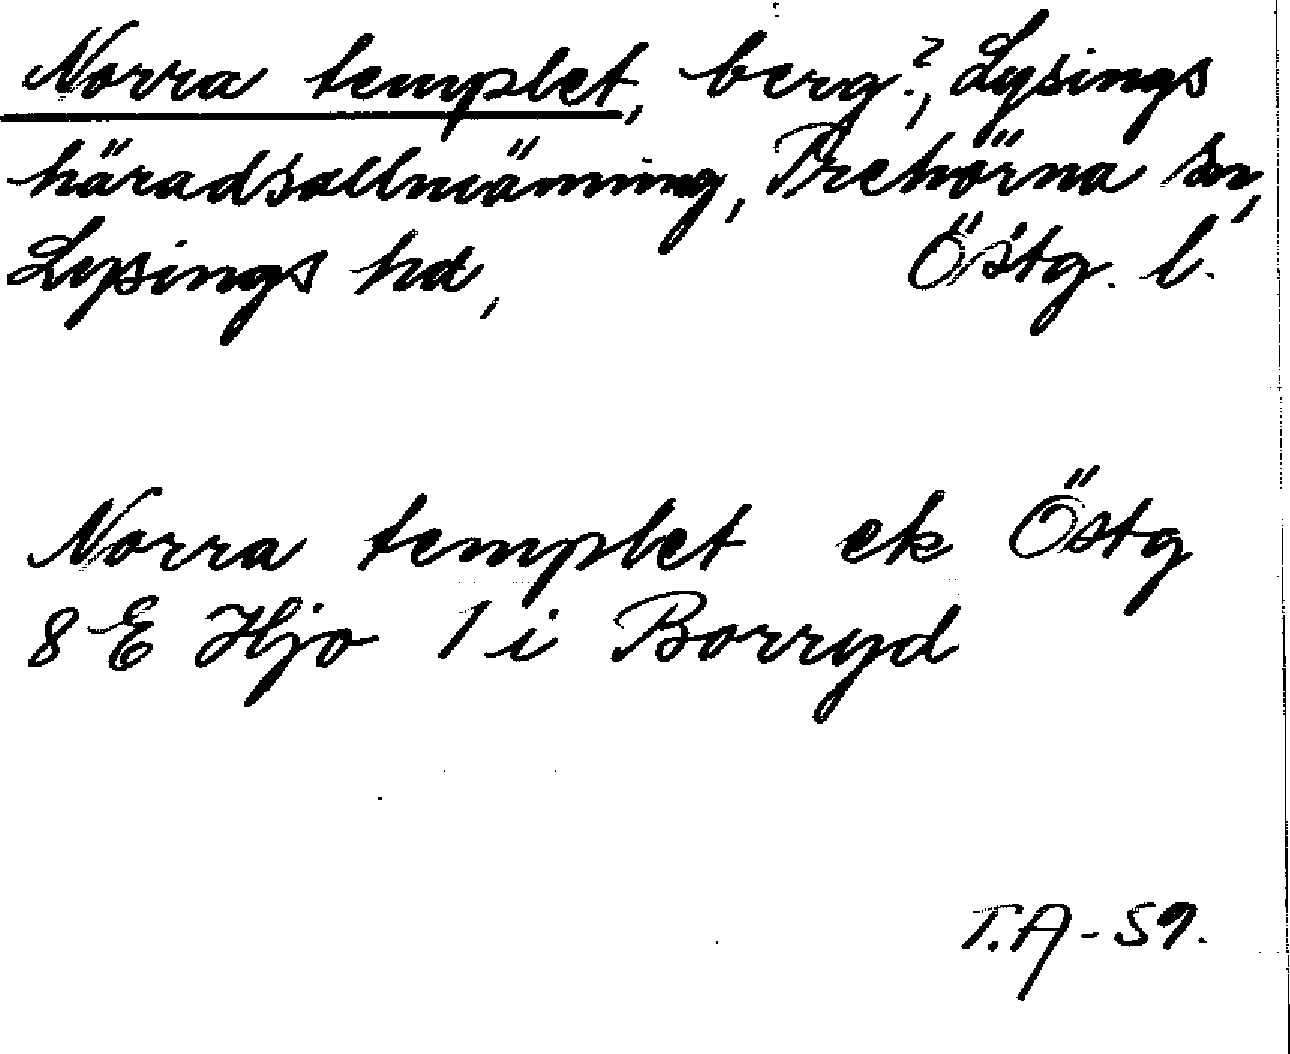 Norra templet, berg?, Lysings
häradsallmänning, Trehörna sn,
Lysings hd, Östg. l.
Norra templet ek Östg
8 E Hjo 1 i Borryd
T.A - 59.